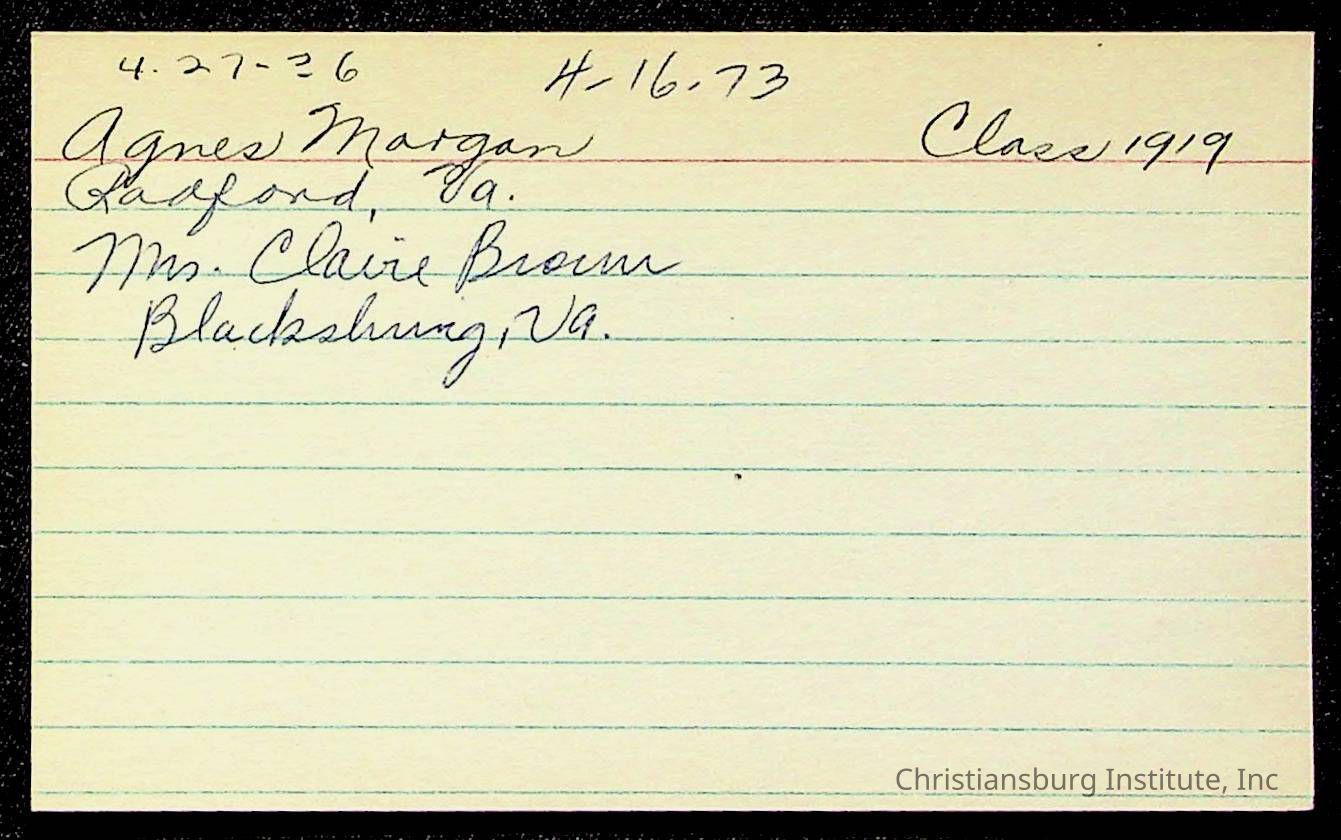 4-27-36 4-16-73
Agnes Morgan Class 1919
Radford, Va.
Mrs. Claire Brown
Blacksburg, Va.
Christiansburg Institute, Inc